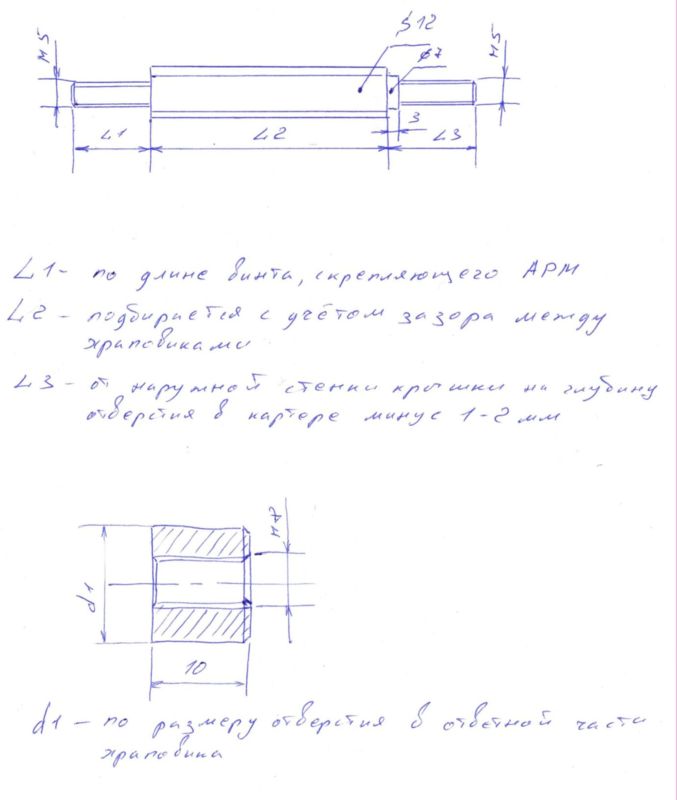 S12
M5
ø7
M5
3
L1
L2
L3
L1 - по длине винта, скрепляющего АРМ
L2 - подбирается с учётом зазора между
храповиками
L3 - от наружной стенки крышки на глубину
отверстия в картере минус 1-2 мм
d1
10
d1 - по размеру отверстия в ответной части
храповика